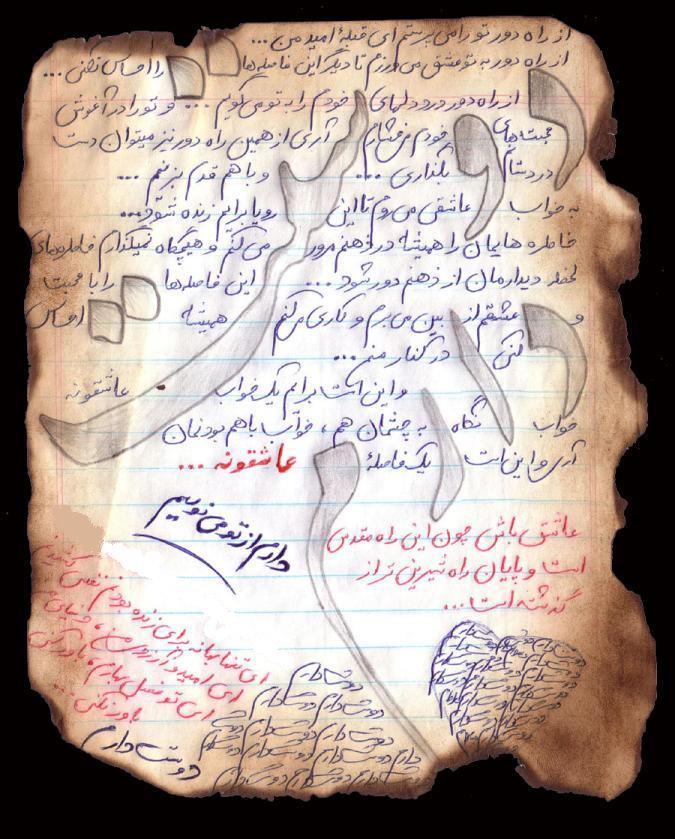 از راه دور تو را می پرستم ای قبلهٔ امید من ...
از راه دور به تو عشق می ورزم تا دیگر این فاصله ها را احساس نکنی ...
از راه دور درد دلهای خودم را به تو می گویم ... و تو را در آغوش
محبت های خودم می فشارم آری از همین راه دور نیز میتوان دست
در دستانم بگذاری ... و با هم قدم بزنیم ...
به خواب عاشقی می روم تا این رویا برایم زنده شود ...
خاطره هایمان را همیشه در ذهنم مرور می کنم و هیچگاه نمیگذارم خاطره های
لحظه دیدارمان از ذهنم دور شود ... این فاصله ها را با محبت
و عشقم از بین می برم و کاری می کنم همیشه احساس
کنی در کنار منی ...
و این است برایم یک خواب عاشقونه
خواب نگاه به چشمان هم ، خواب با هم بودنمان
آری و این است یک فاصلهٔ عاشقونه ...
دارم از تو می نویسم
عاشق باش چون این راه مقدس
است و پایان راه شیرین تر از
گذشته است ...
ای تنها بهانه برای زنده بودنم نفس کشیدنم
ای امید و آرزوی من ، دنیای من
ای تو فصل بهارم ، باور کنی
باور نکنی ...
دوست دارم
دوست دارم
دوست دارم دوست دارم
دوست دارم دوست دارم دوست دارم